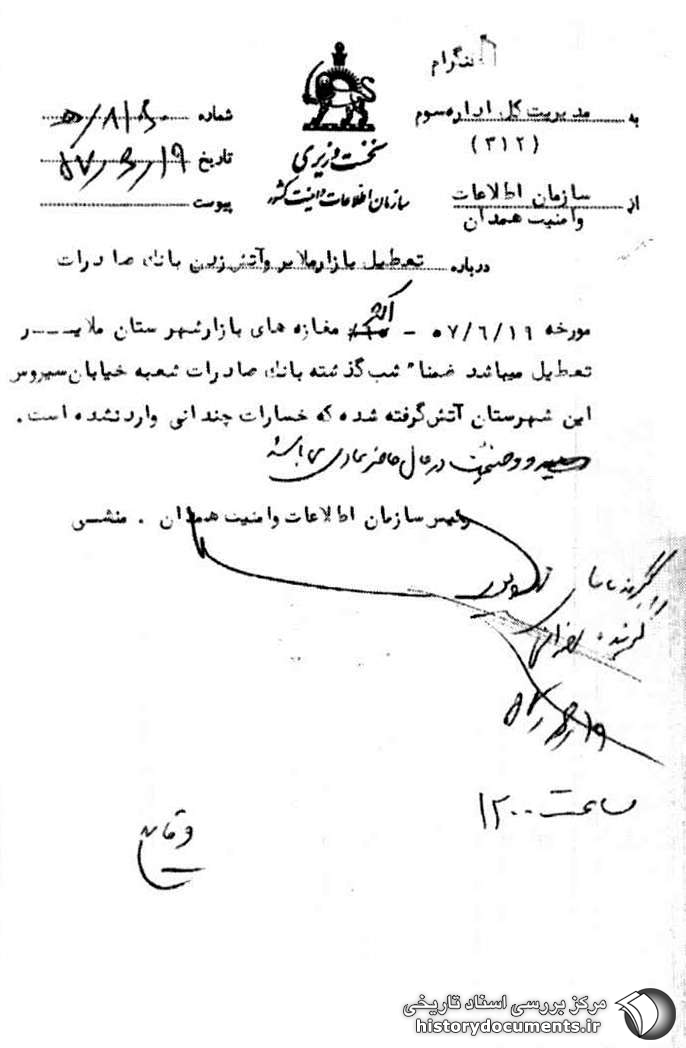 تلگرام
به مدیریت کل اداره سوم
(۳۱۲)
از سازمان اطلاعات
وامنیت همدان
نخست وزیری
سازمان اطلاعات و امنیت کشور
شماره
تاریخ ۵۷/۶/۱۹
پیوست
درباره تعطیل بازار ملایر وآتش زدن بانک صادرات
مورخه ۵۷/۶/۱۹ - اکثر مغازه های بازار شهرستان ملایـــر
تعطیل میباشد ضمنا" شب گذشته بانک صادرات شعبه خیابان سیروس
این شهرستان آتش گرفته شده که خسارات چندانی وارد نشده است .
و وضعیت در حال حاضر عادی می باشد
رئیس سازمان اطلاعات وامنیت همدان . منشـی
گیرنده
۵۷/۶/۱۹
ساعت ۱۲۰۰
مرکز بررسی اسناد تاریخی
historydocuments.ir